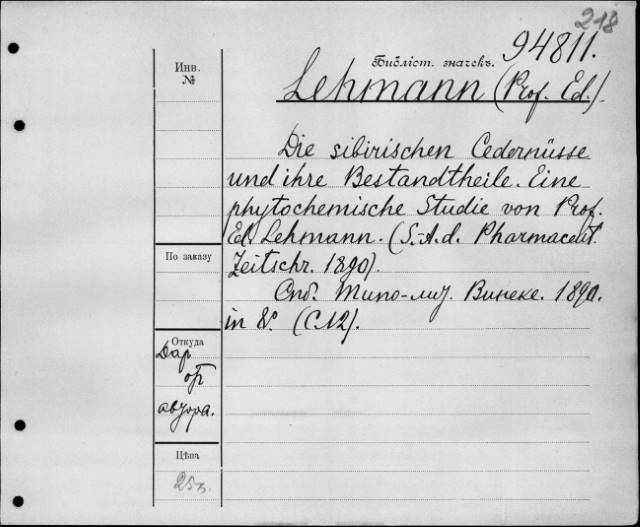 218
Библіот. значекъ. 94811.
Инв.
№
Lehmann (Prof. Ed.).
Die sibirischen Cedernüsse
und ihre Bestandtheile. Eine
phytochemische Studie von Prof.
Ed. Lehmann. (S.-A. d. Pharmaceut.
Zeitschr. 1890).
По заказу
Спб. Типо-лит. Винеке. 1890.
in 8º. (С. 12).
Откуда
Дар
от
автора.
Цѣна
25к.